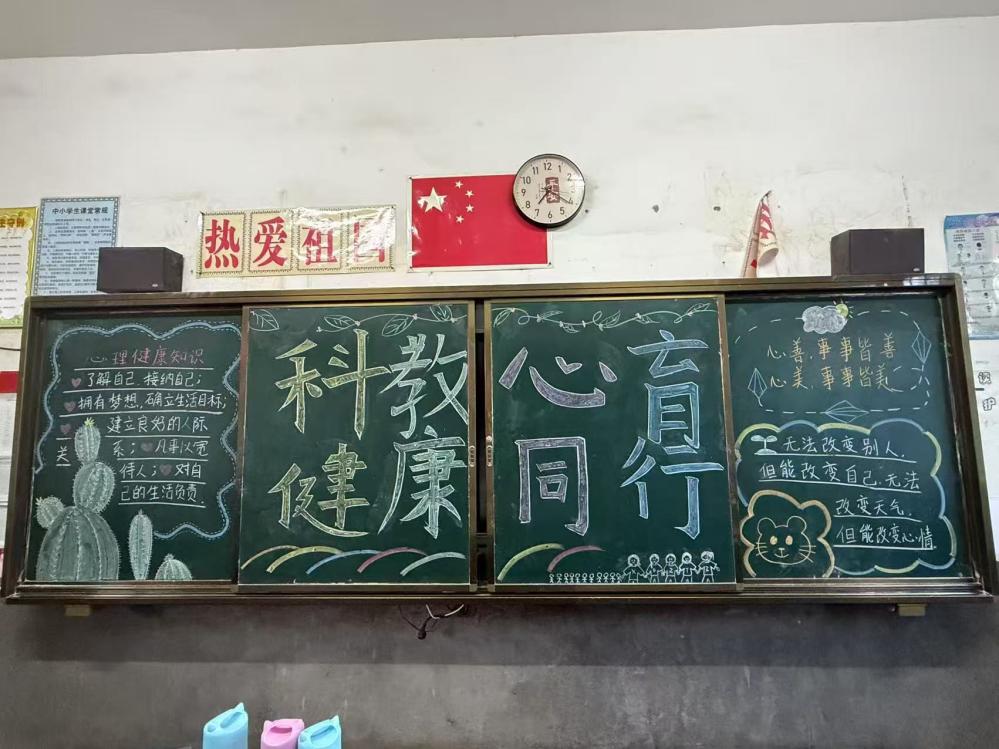 中小学生课堂常规
热爱祖国
心理健康知识
了解自己,接纳自己;
拥有梦想,确立生活目标;
建立良好的人际
关
系;凡事以宽
待人;对自
己的生活负责.
科教
健康
心育
同行
心善,事事皆善
心美,事事皆美
无法改变别人,
但能改变自己,无法
改变天气,
但能改变心情.
12
1
2
3
4
5
6
7
8
9
10
11